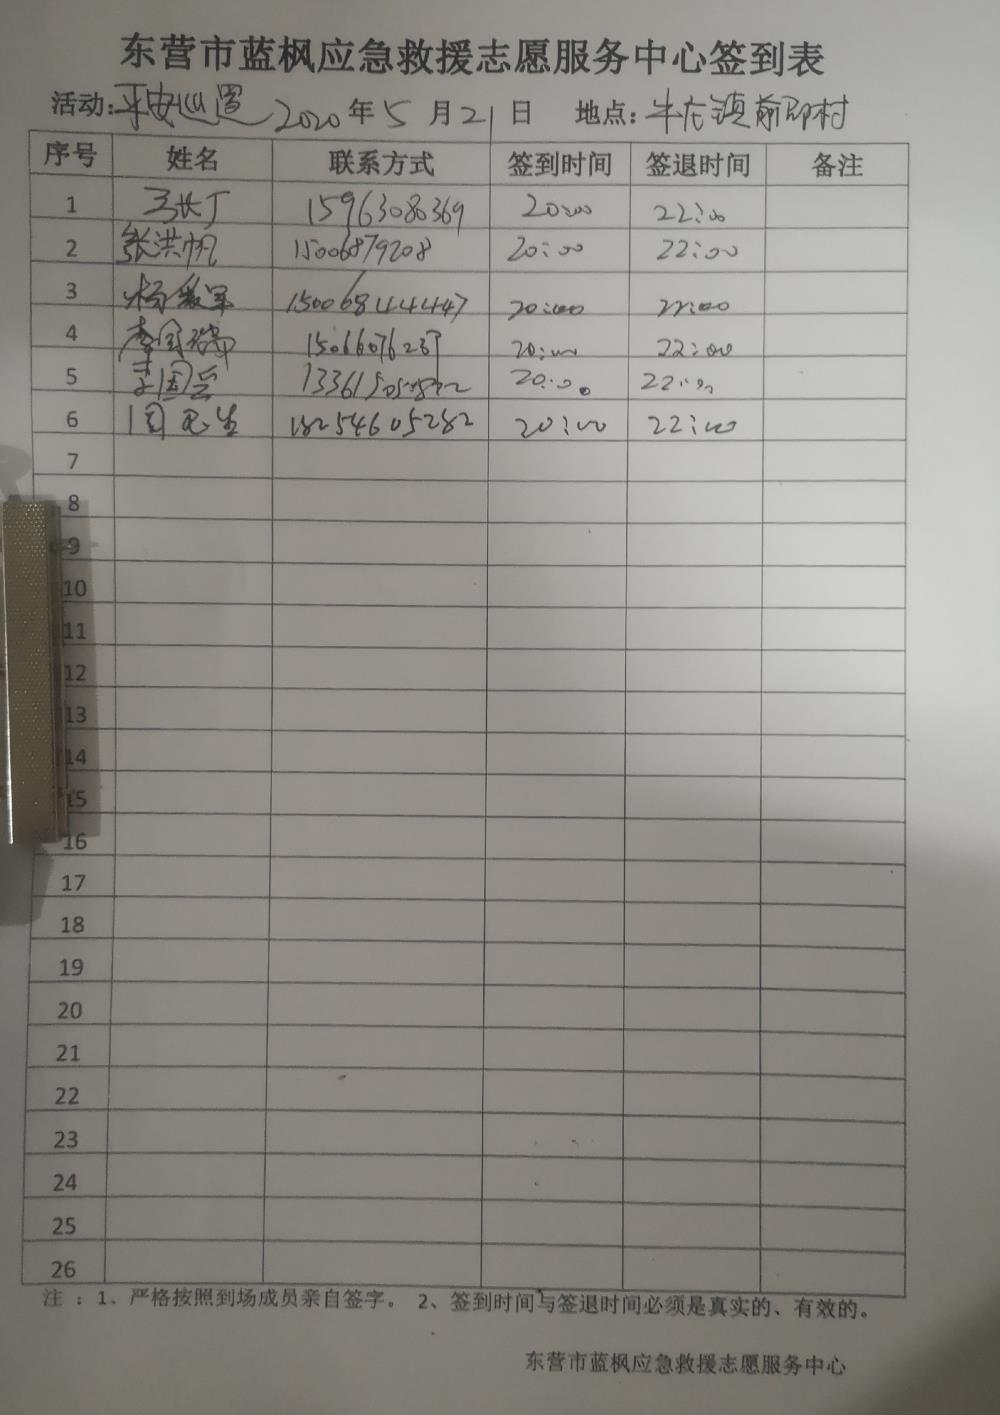 东营市蓝枫应急救援志愿服务中心签到表
活动:平安巡逻 2020年5月21日 地点:牛庄镇前邵村
序号 姓名 联系方式 签到时间 签退时间 备注
1 马长丁 15963080369 20:00 22:00
2 张洪帆 15006879208 20:00 22:00
3 杨爱军 15006844447 20:00 22:00
4 李国瑞 20:00 22:00
5 20:00 22:00
6 周卫生 18254605282 20:00 22:00
7
8
9
10
11
12
13
14
15
16
17
18
19
20
21
22
23
24
25
26
注:1、严格按照到场成员亲自签字。 2、签到时间与签退时间必须是真实的、有效的。
东营市蓝枫应急救援志愿服务中心